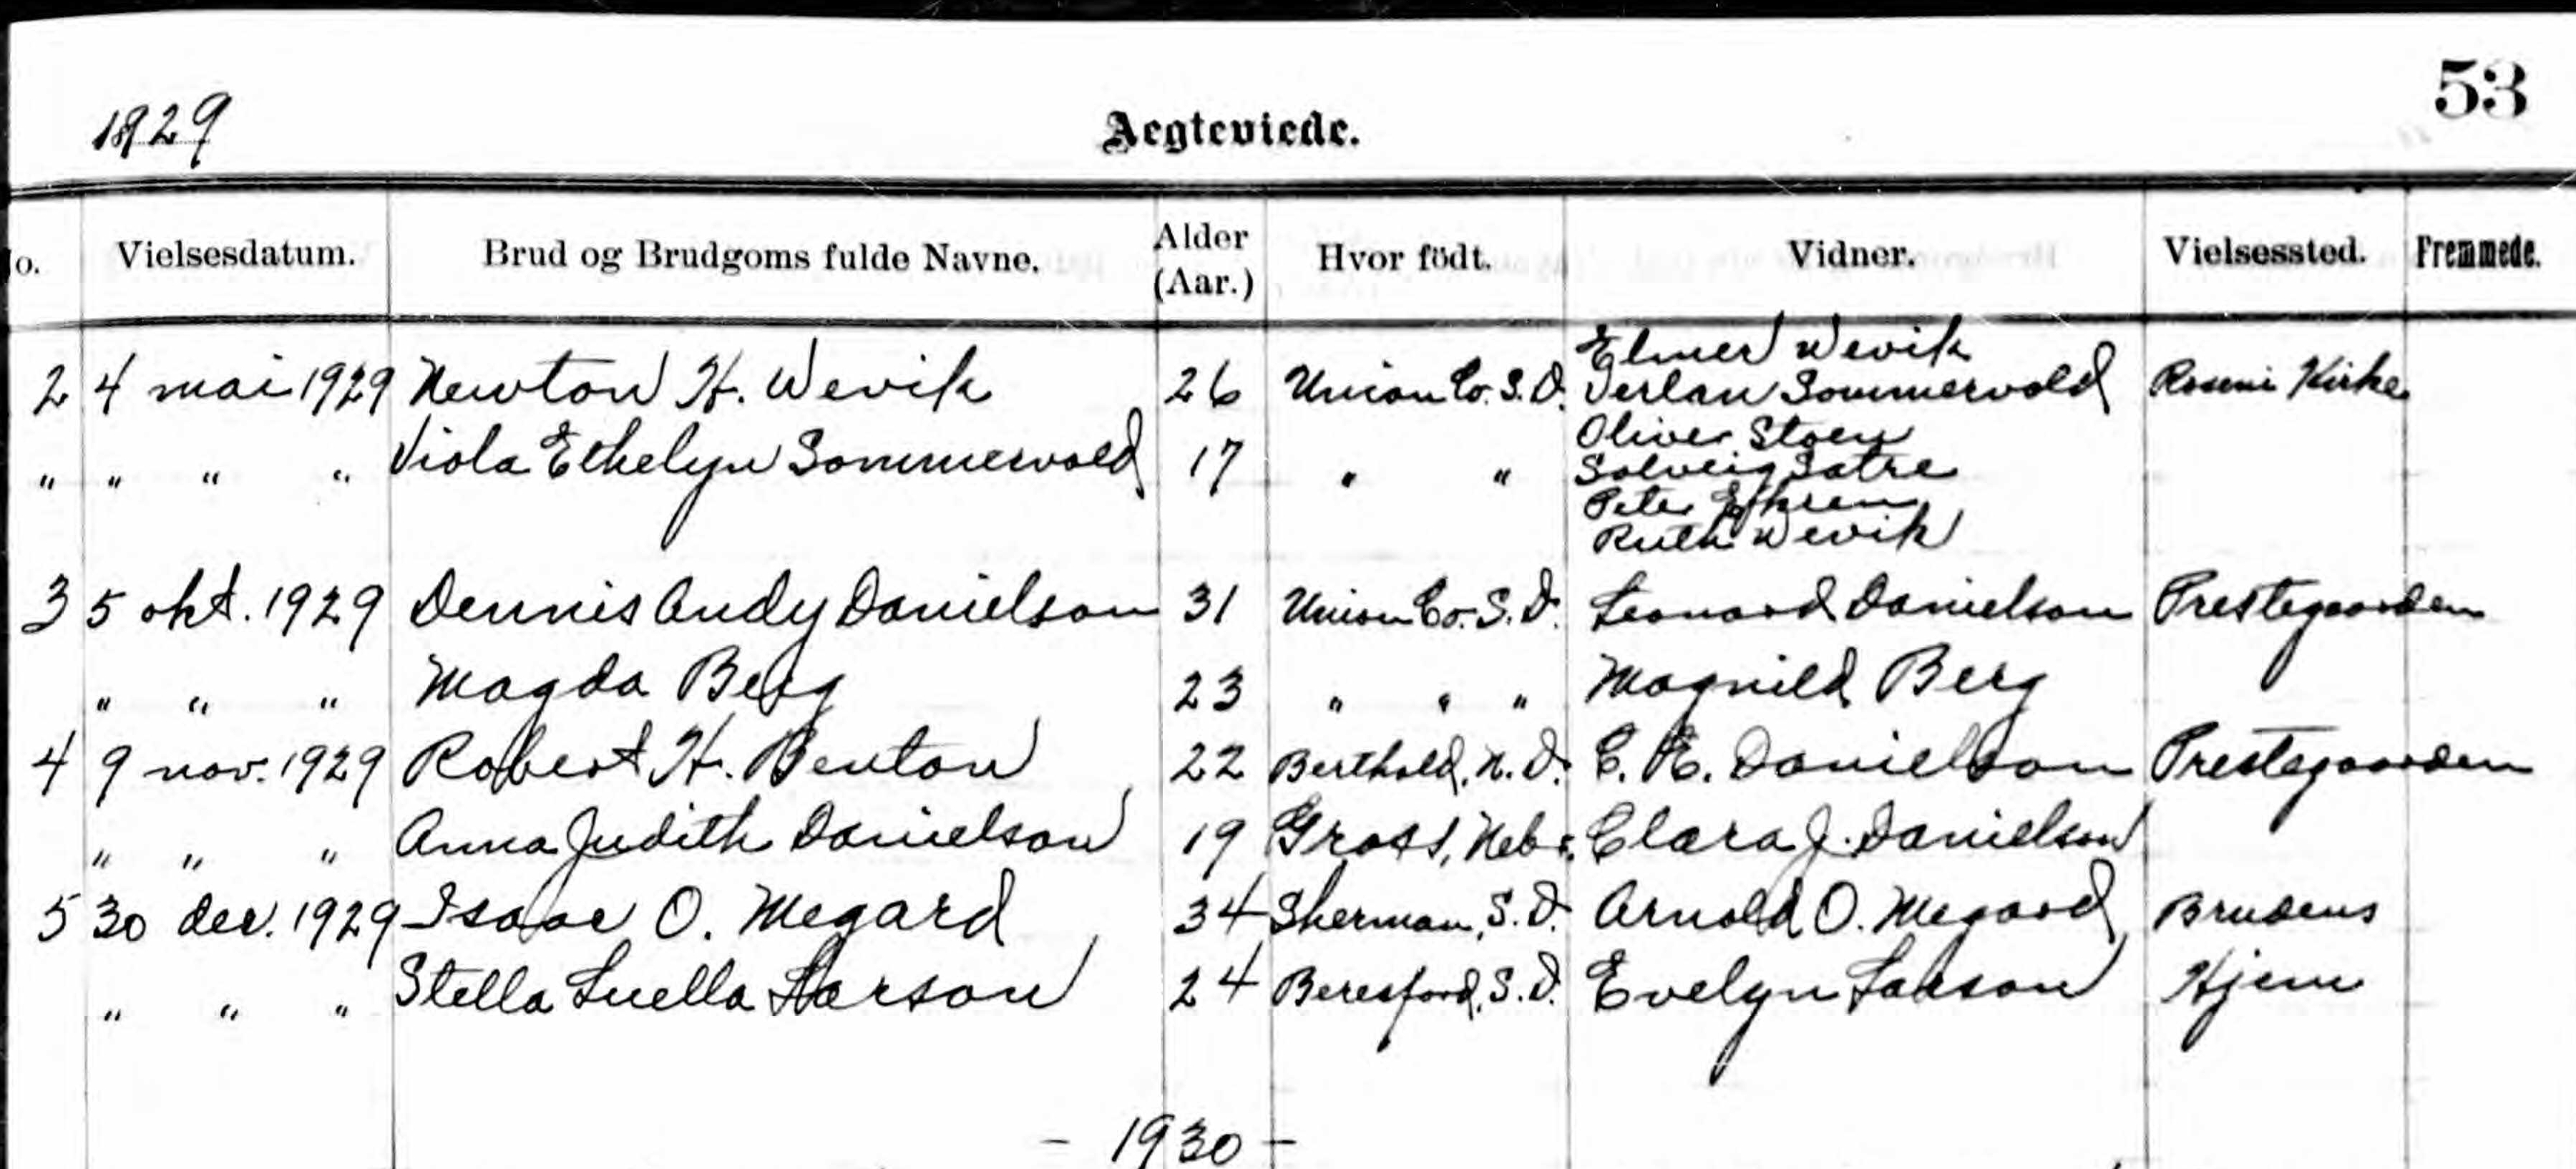 53
1929
Aegteviede.
No. Vielsesdatum. Brud og Brudgoms fulde Navne. Alder (Aar.) Hvor födt. Vidner. Vielsessted. Fremmede.
Elmer Wevik
2 4 mai 1929 Newton H. Wevik 26 Union Co. S.D. Verlan Sommervold Roseni Kirke
Oliver Stoen
" " " " Viola Ethelyn Sommervold 17 " " Solveig Satre
Peter
Ruth Wevik
3 5 okt. 1929 Dennis Andy Danielson 31 Union Co. S.D. Leonard Danielson Prestegaarden
" " " Magda Berg 23 " " " Magnild Berg
4 9 nov. 1929 Robert H. Benton 22 Berthold, N.D. C. E. Danielson Prestegaarden
" " " Anna Judith Danielson 19 Gross, Nebr. Clara J. Danielson
5 30 dec. 1929 Isaac O. Megard 34 Sherman, S.D. Arnold O. Megard Brudens
" " " Stella Luella Larson 24 Beresford, S.D. Evelyn Larson Hjem
- 1930 -